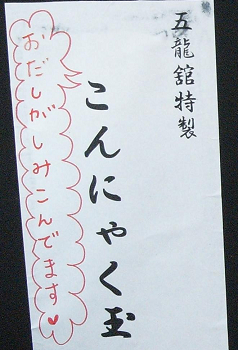 五龍舘特製
こんにゃく玉
おだしがしみこんでます♥